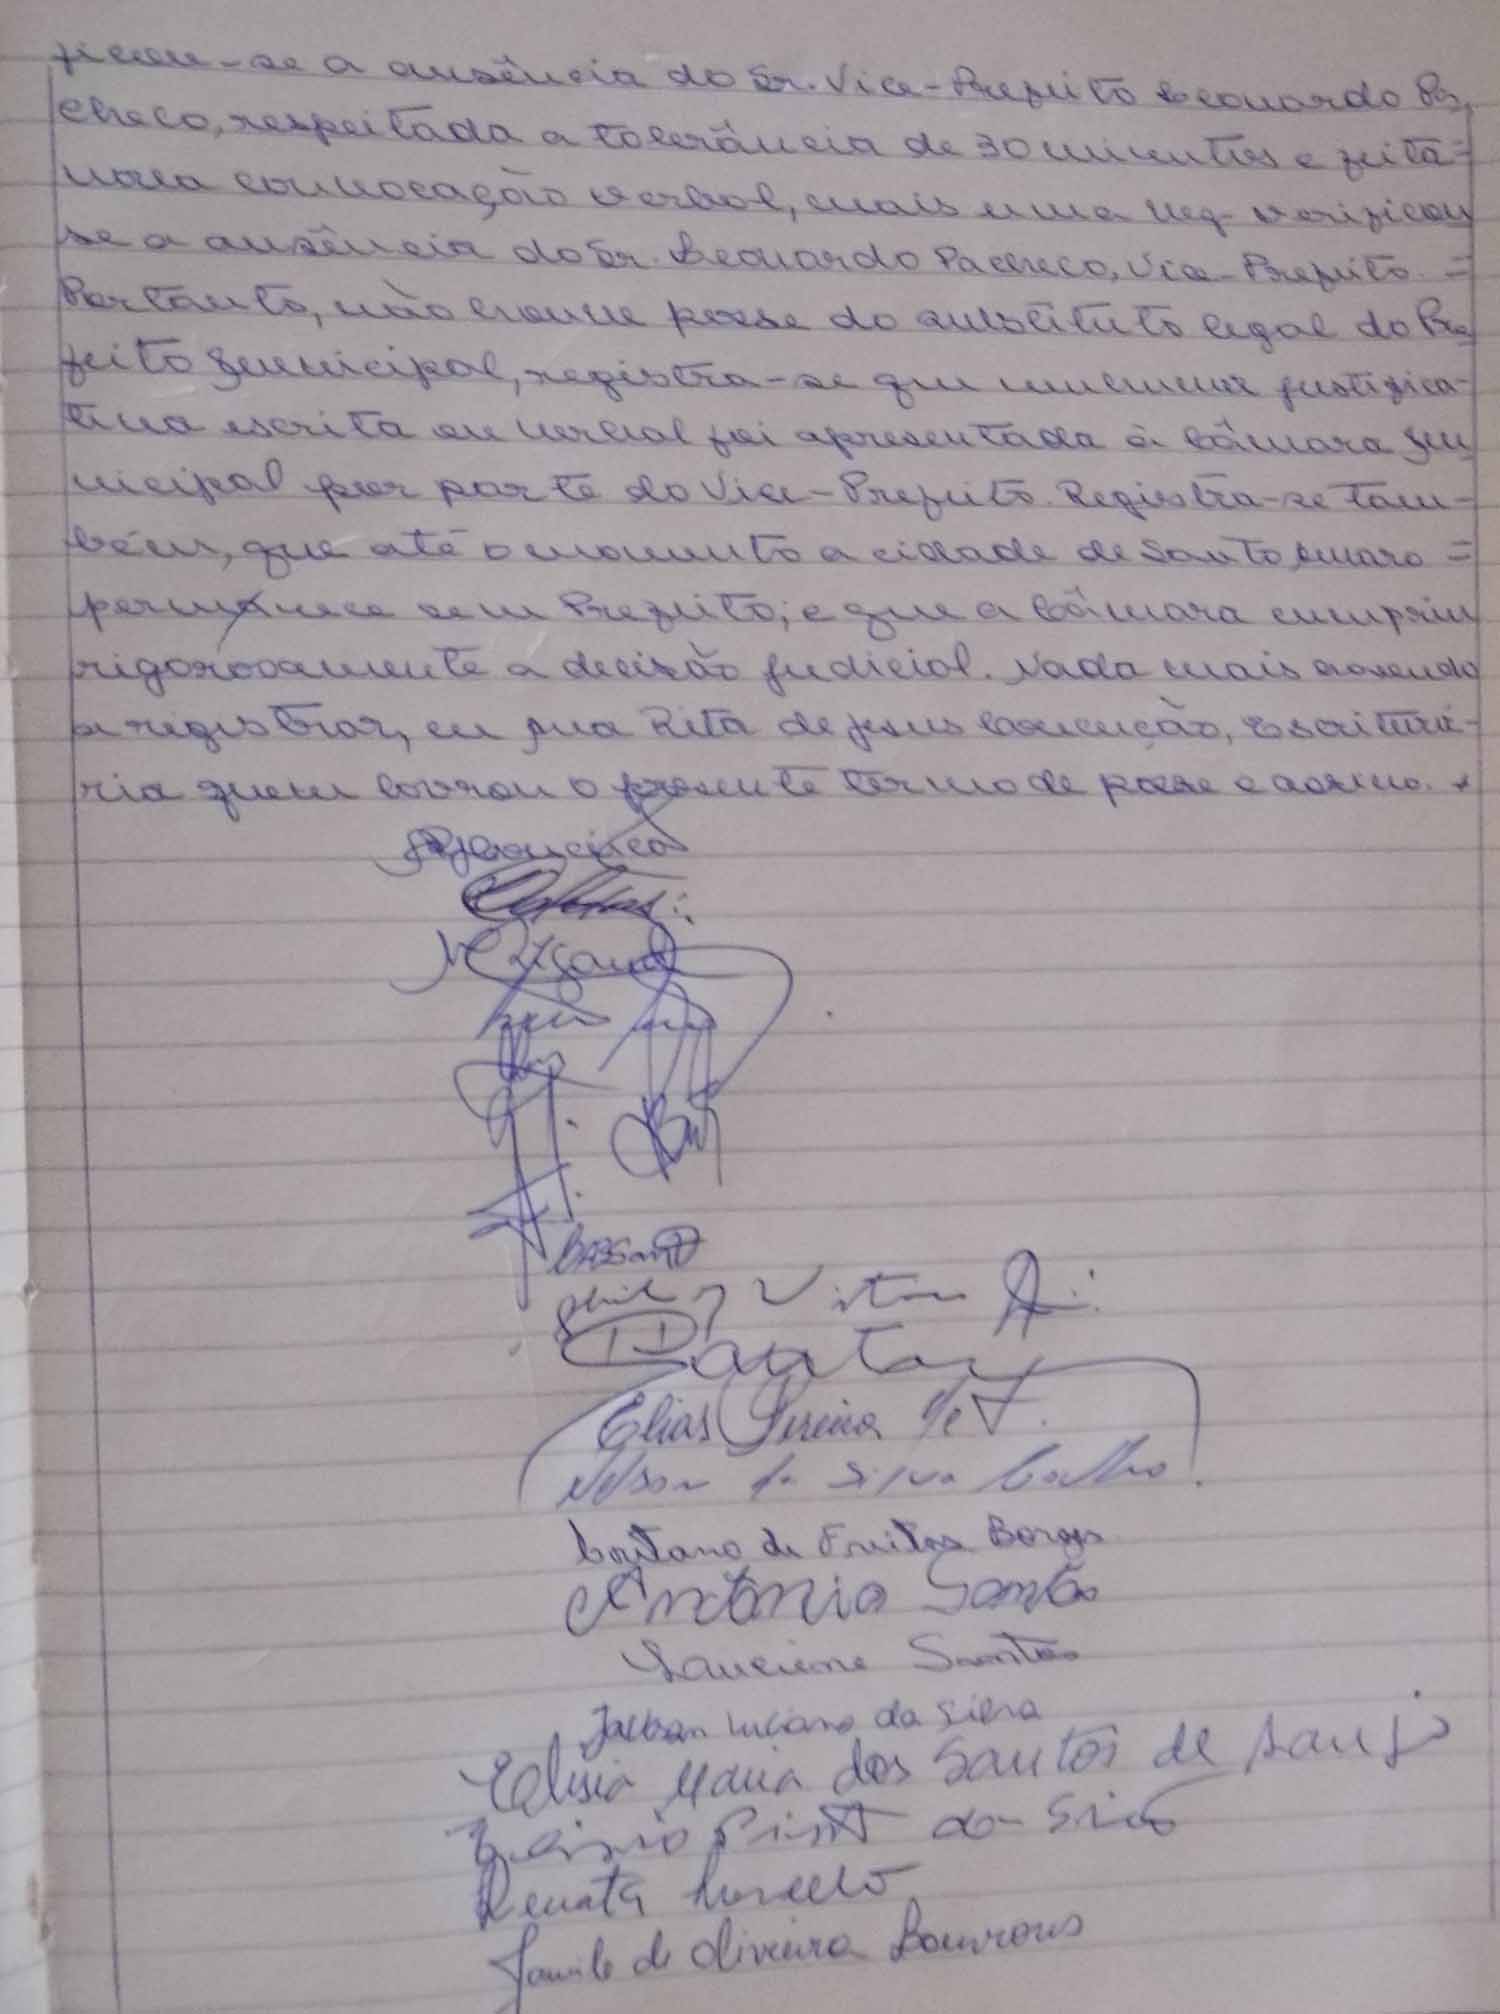 ficou-se a ausência do Sr. Vice-Prefeito Leonardo Pa-
checo, respeitada a tolerância de 30 minutos e feita =
nova convocação verbal, mais uma vez verificou
se a ausência do Sr. Leonardo Pacheco, Vice-Prefeito. =
Portanto, não houve posse do substituto legal do Pre-
feito Municipal, registra-se que nenhuma justifica-
tiva escrita ou verbal foi apresentada à Câmara Mu-
nicipal por parte do Vice-Prefeito. Registra-se tam-
bém, que até o momento a cidade de Santo Amaro =
permanece sem Prefeito; e que a Câmara cumpriu
rigorosamente a decisão judicial. Nada mais havendo
a registrar, eu Ana Rita de Jesus Conceição, Escriturá-
ria quem lavrou o presente termo de posse e assino.
Santos
Elias Pereira
Nelson da Silva Coelho
Caetano de Freitas Borges
Antônio Santos
Lauciene Santos
Luciano da Silva
Maria dos Santos de Araujo
Pinto da Silva
Renata
de Oliveira